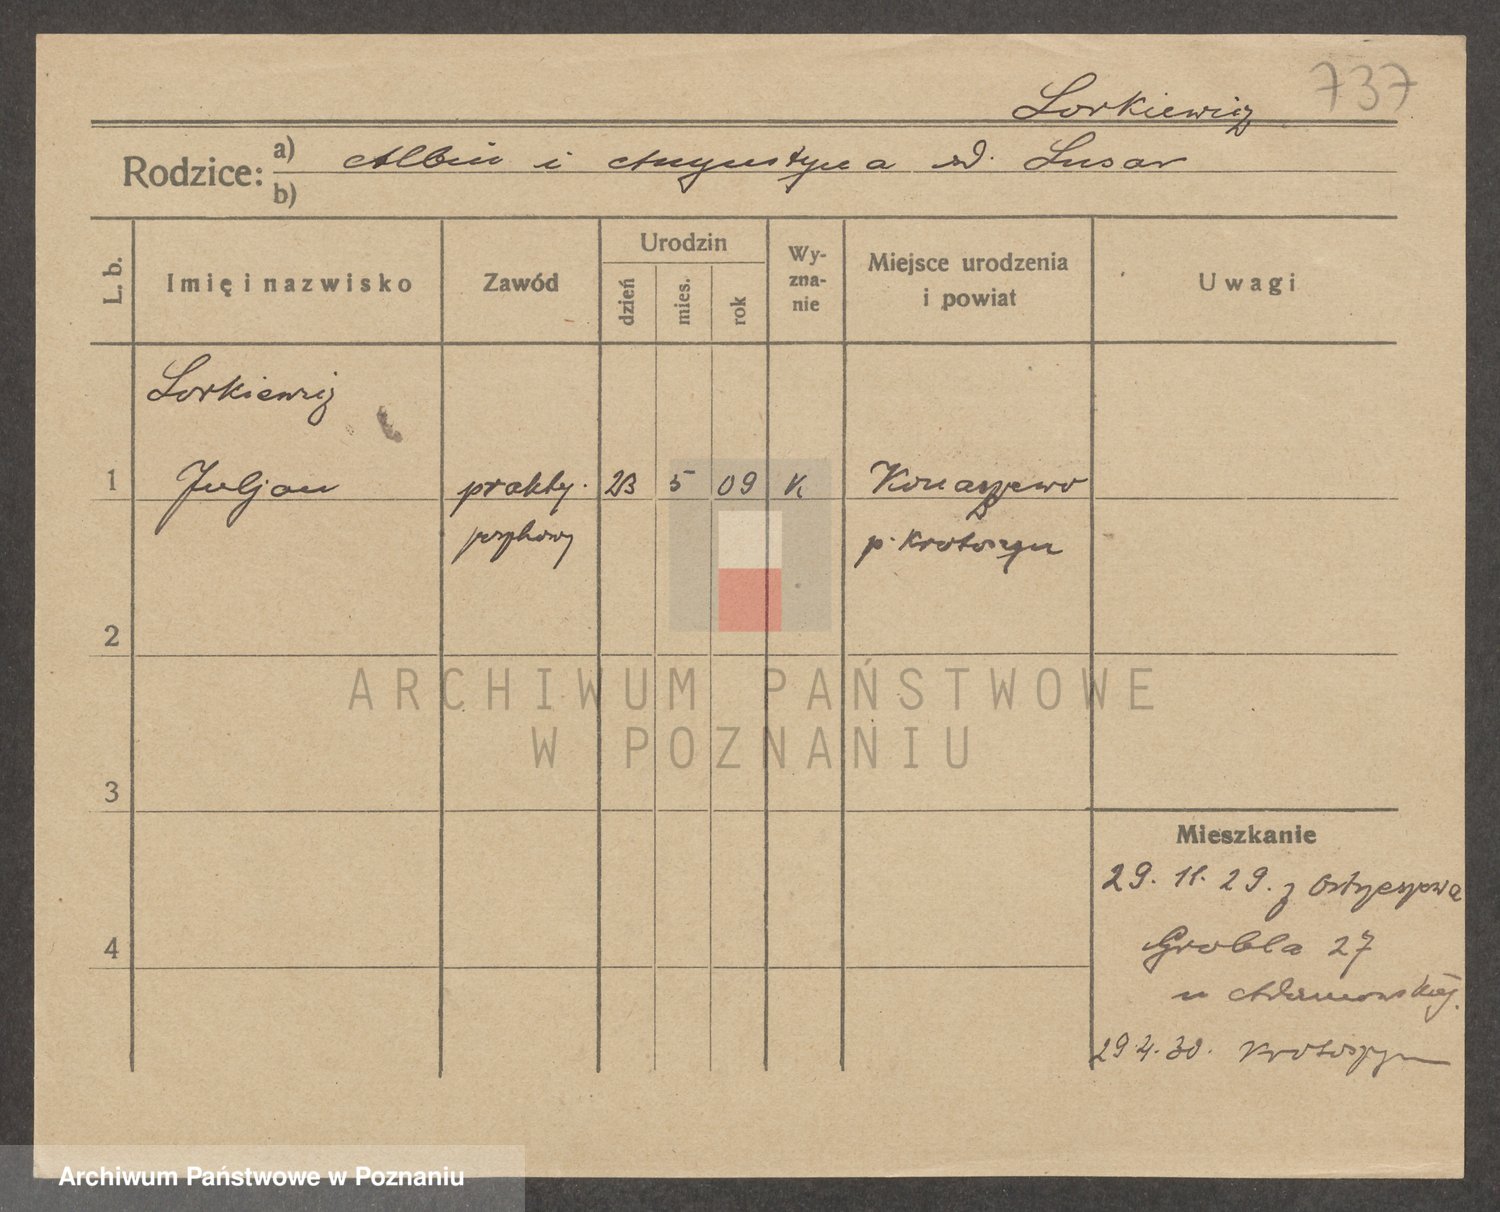 737
Lorkiewicz
Rodzice: a) Albin i Augustyna rd. Lusar
b)
L. b.
Imię i nazwisko
Zawód
Urodzin
dzień
mies.
rok
Wy-
zna-
nie
Miejsce urodzenia
i powiat
Uwagi
Lorkiewicz
1 Juljan prakty. 23 5 09 K Konaszewo
p. Krotoszyn
2
3
4
Mieszkanie
29. 11. 29. z Ostrzeszowa
Grobla 27
u Adamowskiej.
29.4.30. Krotoszyn
ARCHIWUM PAŃSTWOWE
W POZNANIU
Archiwum Państwowe w Poznaniu